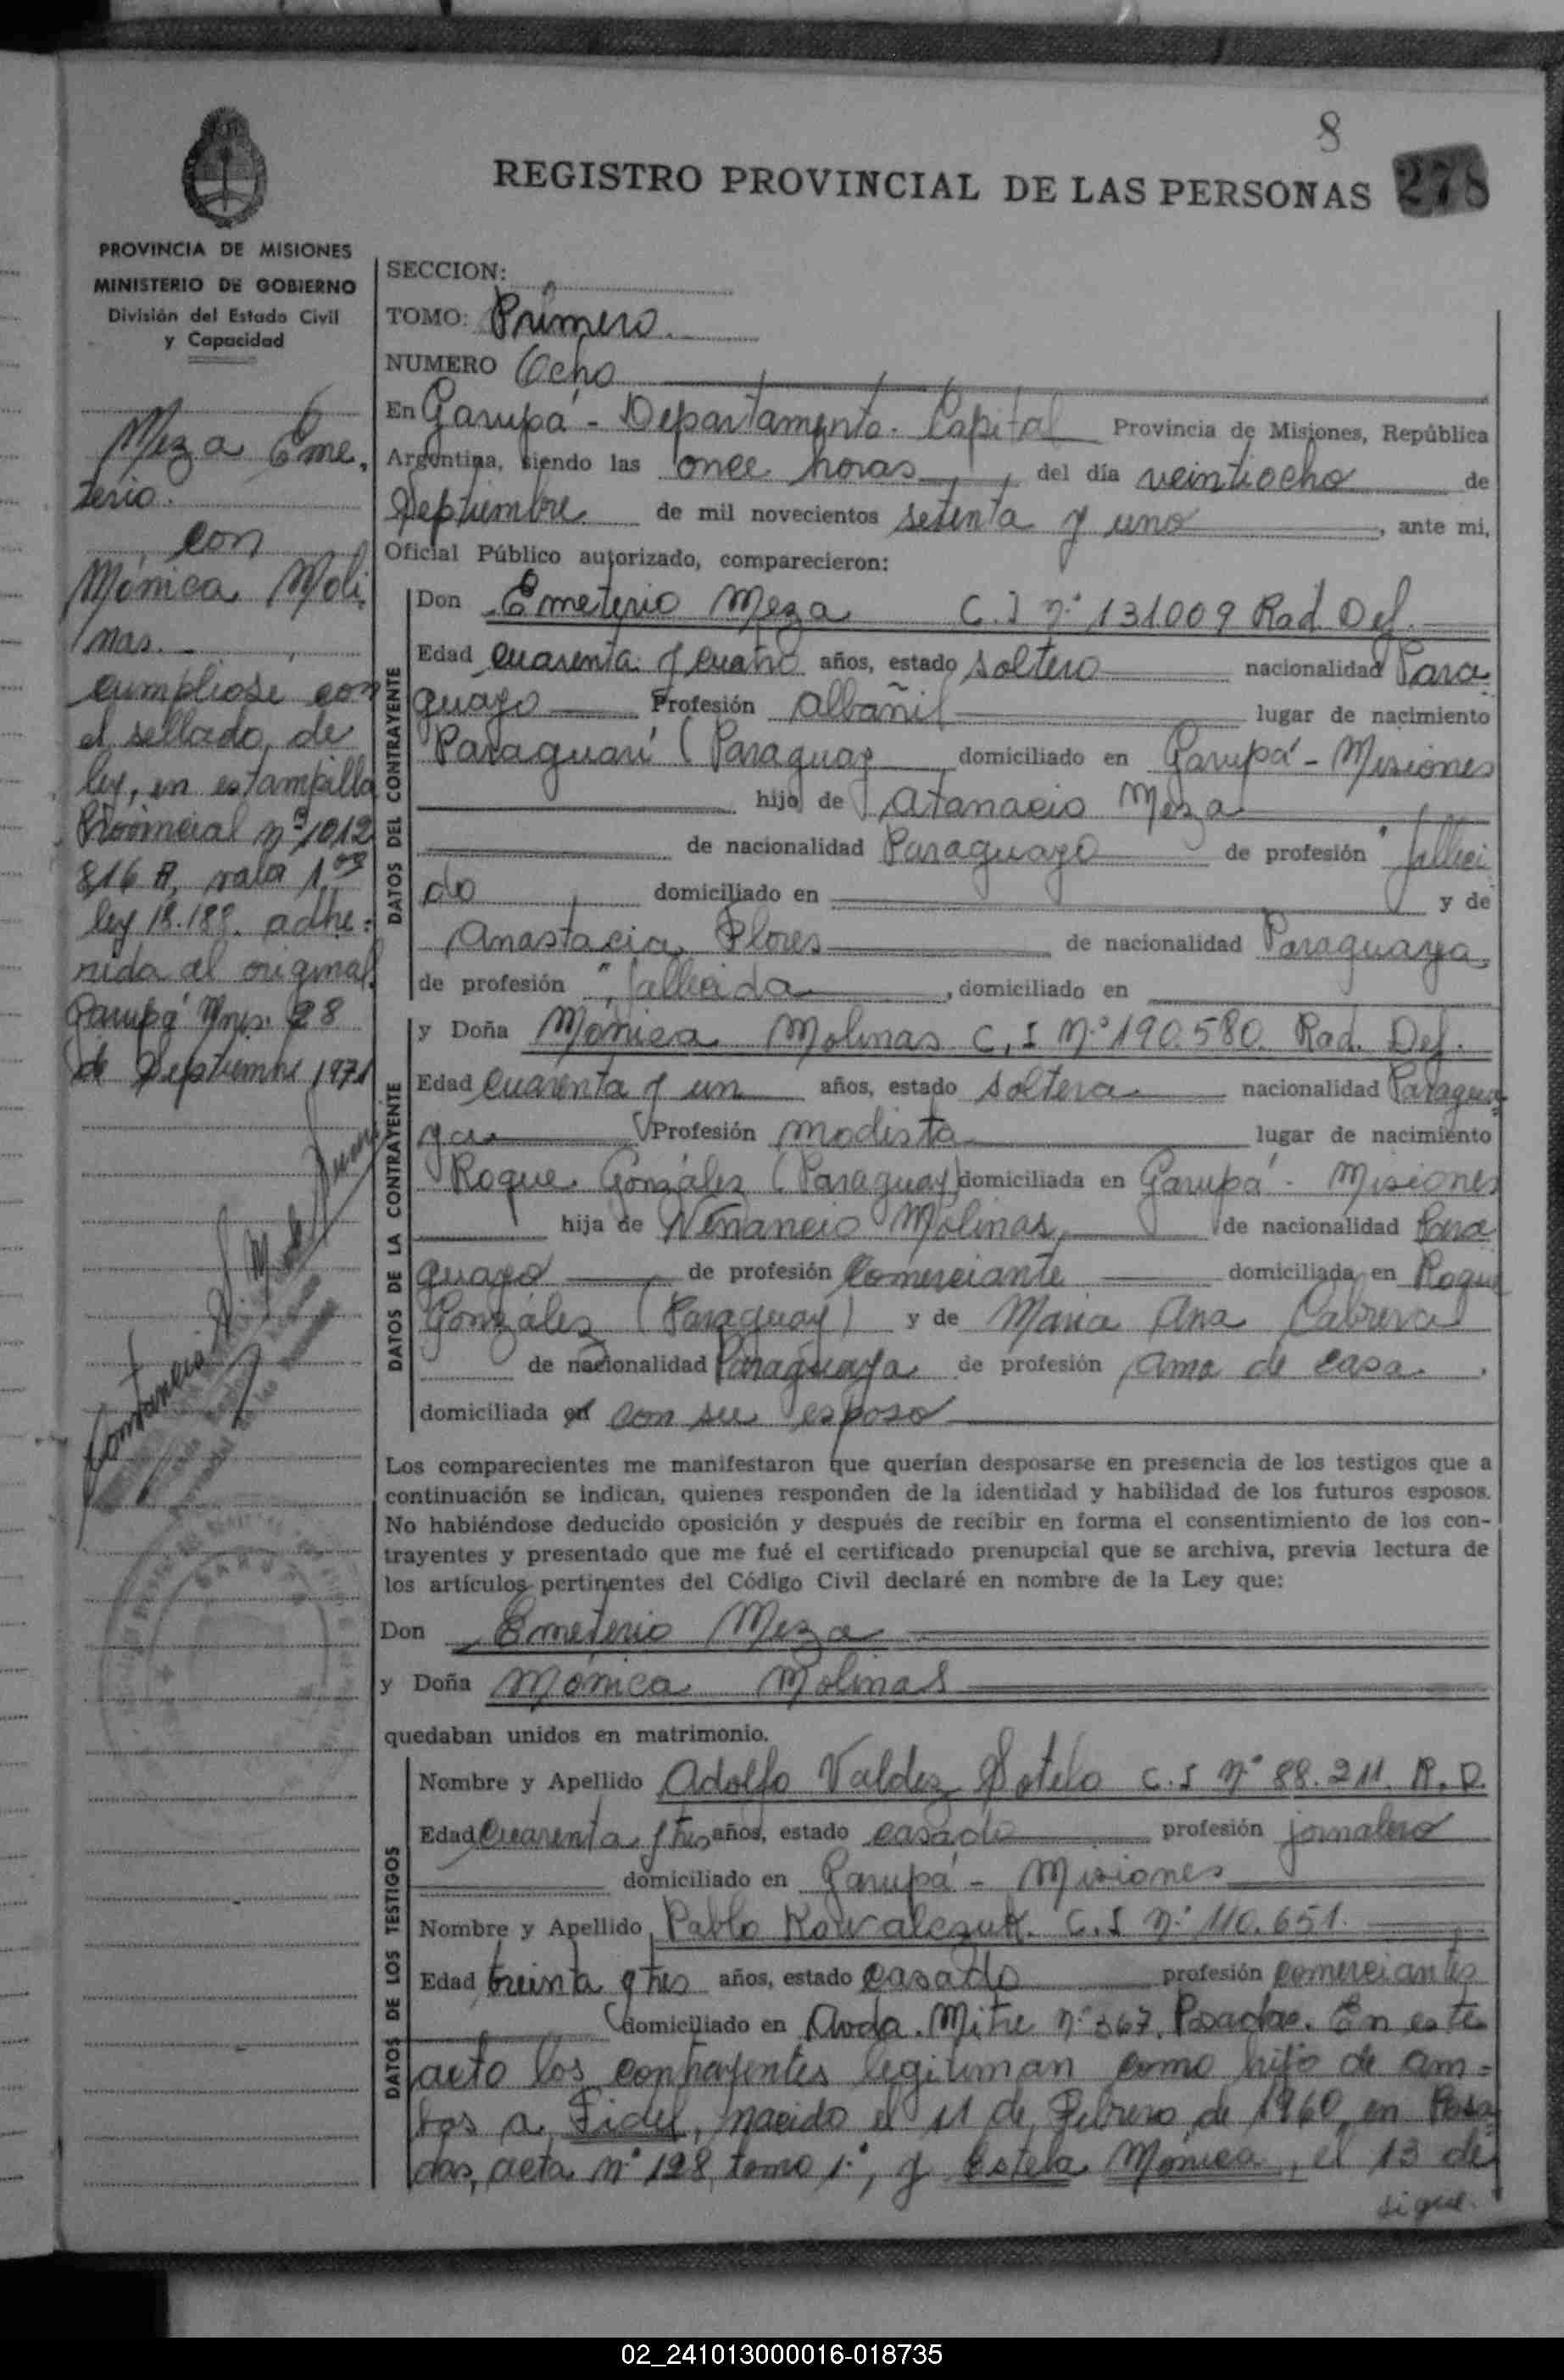 8
REGISTRO PROVINCIAL DE LAS PERSONAS 278
PROVINCIA DE MISIONES
MINISTERIO DE GOBIERNO
División del Estado Civil
y Capacidad
Meza Eme,
terio.
con
Mónica Moli
nas.
cumpliose con
el sellado, de
ley, en estampilla
Provincial nº 1012
816 A, valor 1,00
ley 18.188. adhe=
rida al original.
Garupá Mnes. 28
de Septiembre 1971
SECCION:
TOMO: Primero.
NUMERO Ocho
En Garupá - Departamento. Capital Provincia de Misiones, República
Argentina, siendo las once horas, del día veintiocho de
Septiembre de mil novecientos setenta y uno, ante mi,
Oficial Público autorizado, comparecieron:
DATOS DEL CONTRAYENTE
Don Emeterio Meza C.I nº 131.009 Rad. Def.
Edad cuarenta y cuatro años, estado soltero nacionalidad Para
guayo Profesión albañil lugar de nacimiento
Paraguarí (Paraguay domiciliado en Garupá - Misiones
hijo de Atanacio Meza
de nacionalidad Paraguayo de profesión "falleci
do domiciliado en y de
Anastacia Flores de nacionalidad Paraguaya
de profesión "fallecida, domiciliado en
DATOS DE LA CONTRAYENTE
y Doña Mónica Molinas C,I Nº 190.580. Rad. Def.
Edad cuarenta y un años, estado soltera nacionalidad Paragua
ya Profesión modista lugar de nacimiento
Roque González (Paraguay) domiciliada en Garupá - Misiones
hija de Venancio Molinas, de nacionalidad Para
guayo de profesión Comerciante domiciliada en Roque
González (Paraguay) y de Maria Ana Cabrera
de nacionalidad Paraguaya de profesión ama de casa.
domiciliada en con su esposo
Los comparecientes me manifestaron que querían desposarse en presencia de los testigos que a
continuación se indican, quienes responden de la identidad y habilidad de los futuros esposos.
No habiéndose deducido oposición y después de recibir en forma el consentimiento de los con-
trayentes y presentado que me fué el certificado prenupcial que se archiva, previa lectura de
los artículos pertinentes del Código Civil declaré en nombre de la Ley que:
Don Emeterio Meza
y Doña Mónica Molinas
quedaban unidos en matrimonio.
DATOS DE LOS TESTIGOS
Nombre y Apellido Adolfo Valdez Sotelo C.I nº 88.211. R.D.
Edad cuarenta y tres años, estado casado profesión jornalero
domiciliado en Garupá - Misiones
Nombre y Apellido Pablo Kowalczuk. C.I nº 110.651.
Edad treinta y tres años, estado casado profesión comerciantes
domiciliado en Avda. Mitre nº 367, Posadas. En este
acto los contrayentes legitiman como hijo de am=
bos a Fidel, nacido el 11 de Febrero de 1960, en Posa
das, acta nº 128 tomo 1º, y Estela Mónica, el 13 de
sigue.
02_241013000016-018735